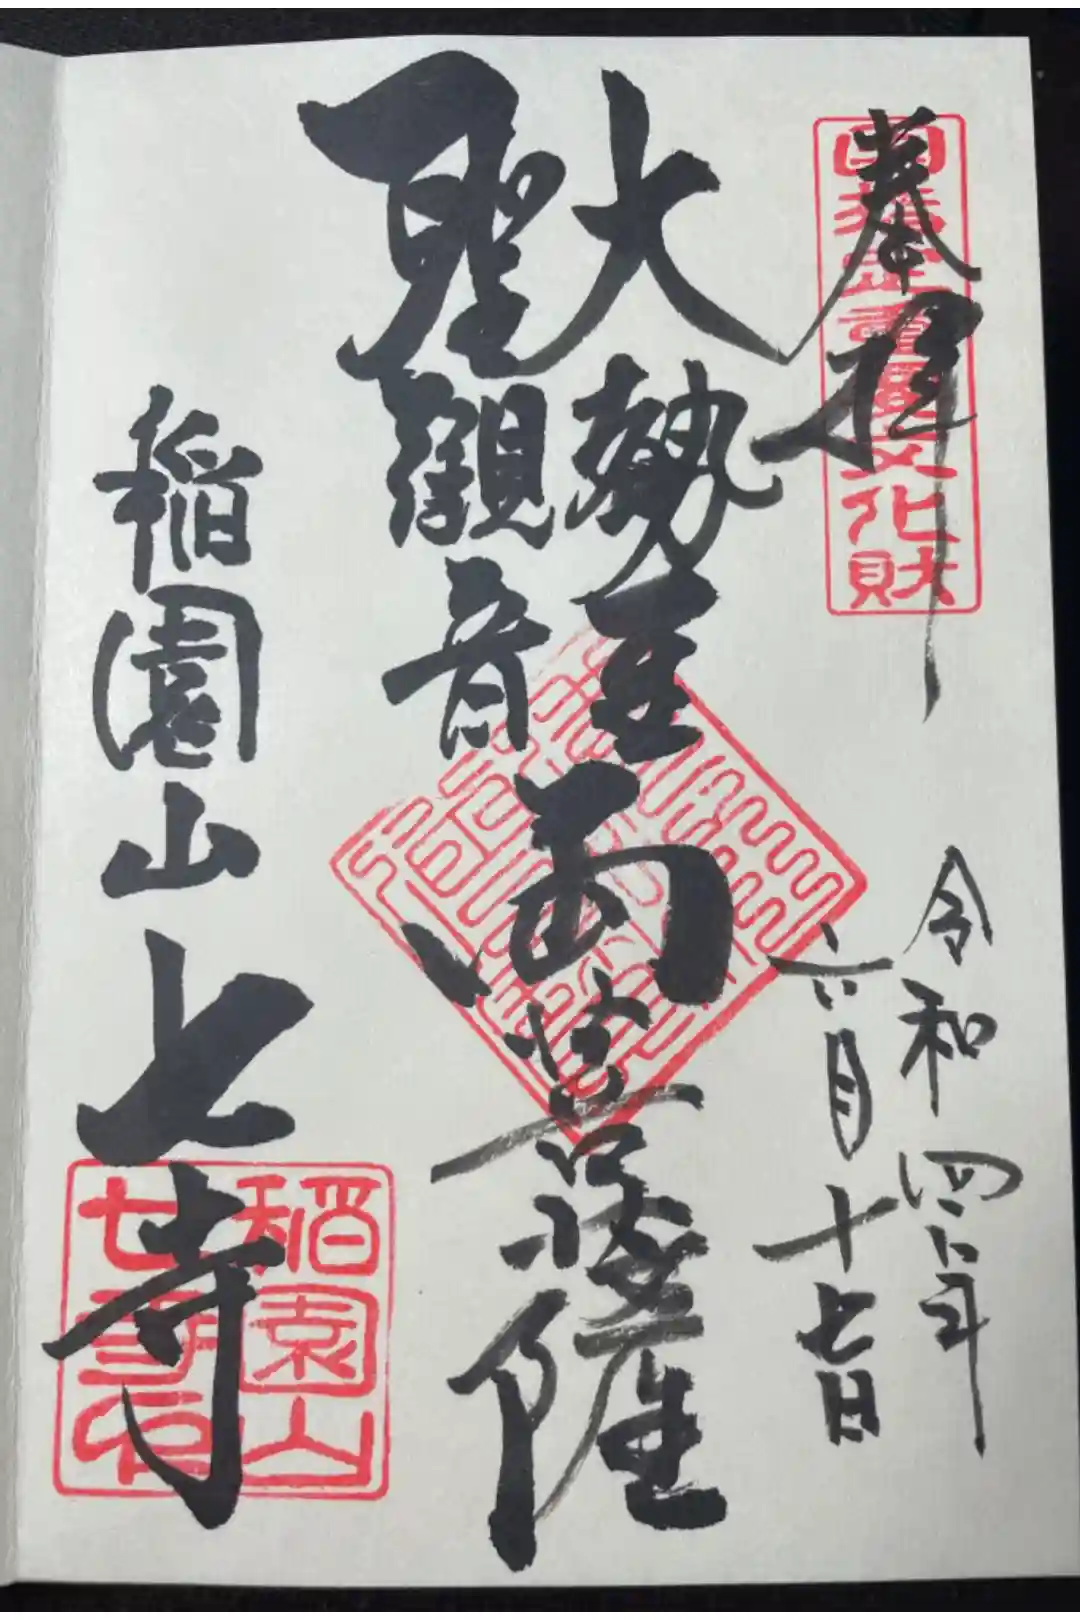 奉拝
国指定重要文化財
令和四年
六月十七日
大勢至
聖観音
両菩薩
稲園山
七寺
稲園山
七寺印